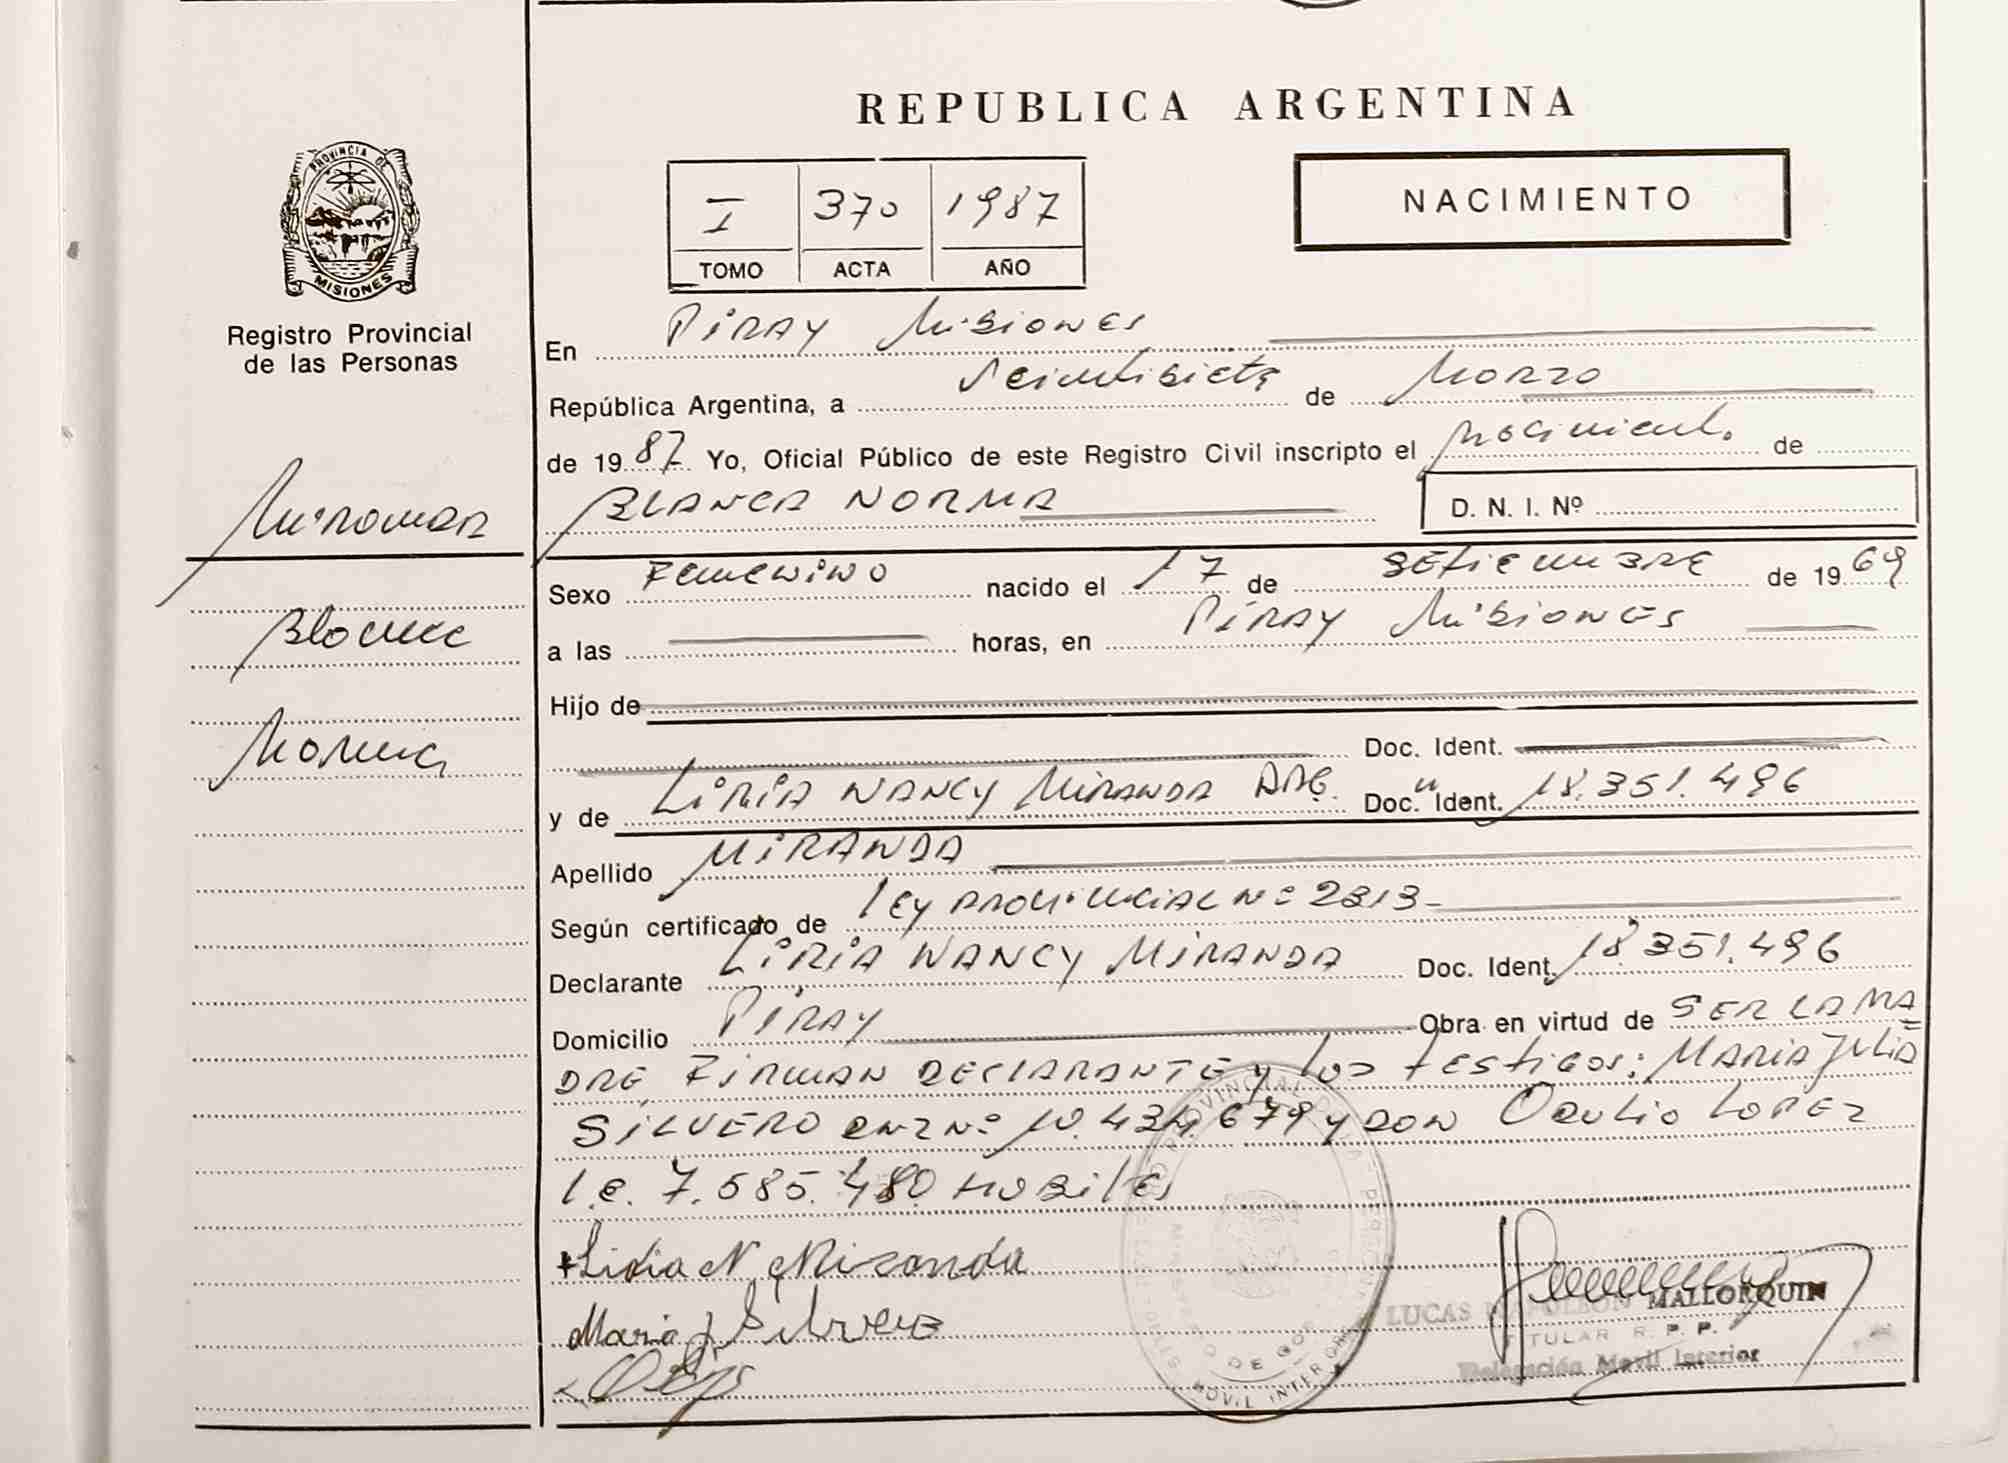 REPUBLICA ARGENTINA
PROVINCIA DE
MISIONES
Registro Provincial
de las Personas
I 370 1987
TOMO ACTA AÑO
NACIMIENTO
En Piray Misiones
República Argentina, a Veintisiete de Marzo
de 1987 Yo, Oficial Público de este Registro Civil inscripto el nacimiento de
BLANCA NORMA D. N. I. Nº
Blanca
Norma
Sexo Femenino nacido el 17 de SETIEMBRE de 1969
a las horas, en Piray Misiones
Hijo de
Doc. Ident.
y de LiRiA NANCY MiRANDA ARG. Doc. Ident. 18.351.496
Apellido MiRANDA
Según certificado de ley provincial Nº 2313-
Declarante LiRiA NANCY MiRANDA Doc. Ident. 18.351.496
Domicilio PiRAY Obra en virtud de SER LA MA
DRE FiRMAN DECLARANTE y los testigos: MARiA JuliA
SiLVERO Nº 10.434.679 y DON LOPEZ
l.e. 7.585.480 Hobiles
Lidia N Miranda
Maria J Silvero
LUCAS NAPOLEON MALLORQUIN
TITULAR R. P. P.
Delegación Movil Interior